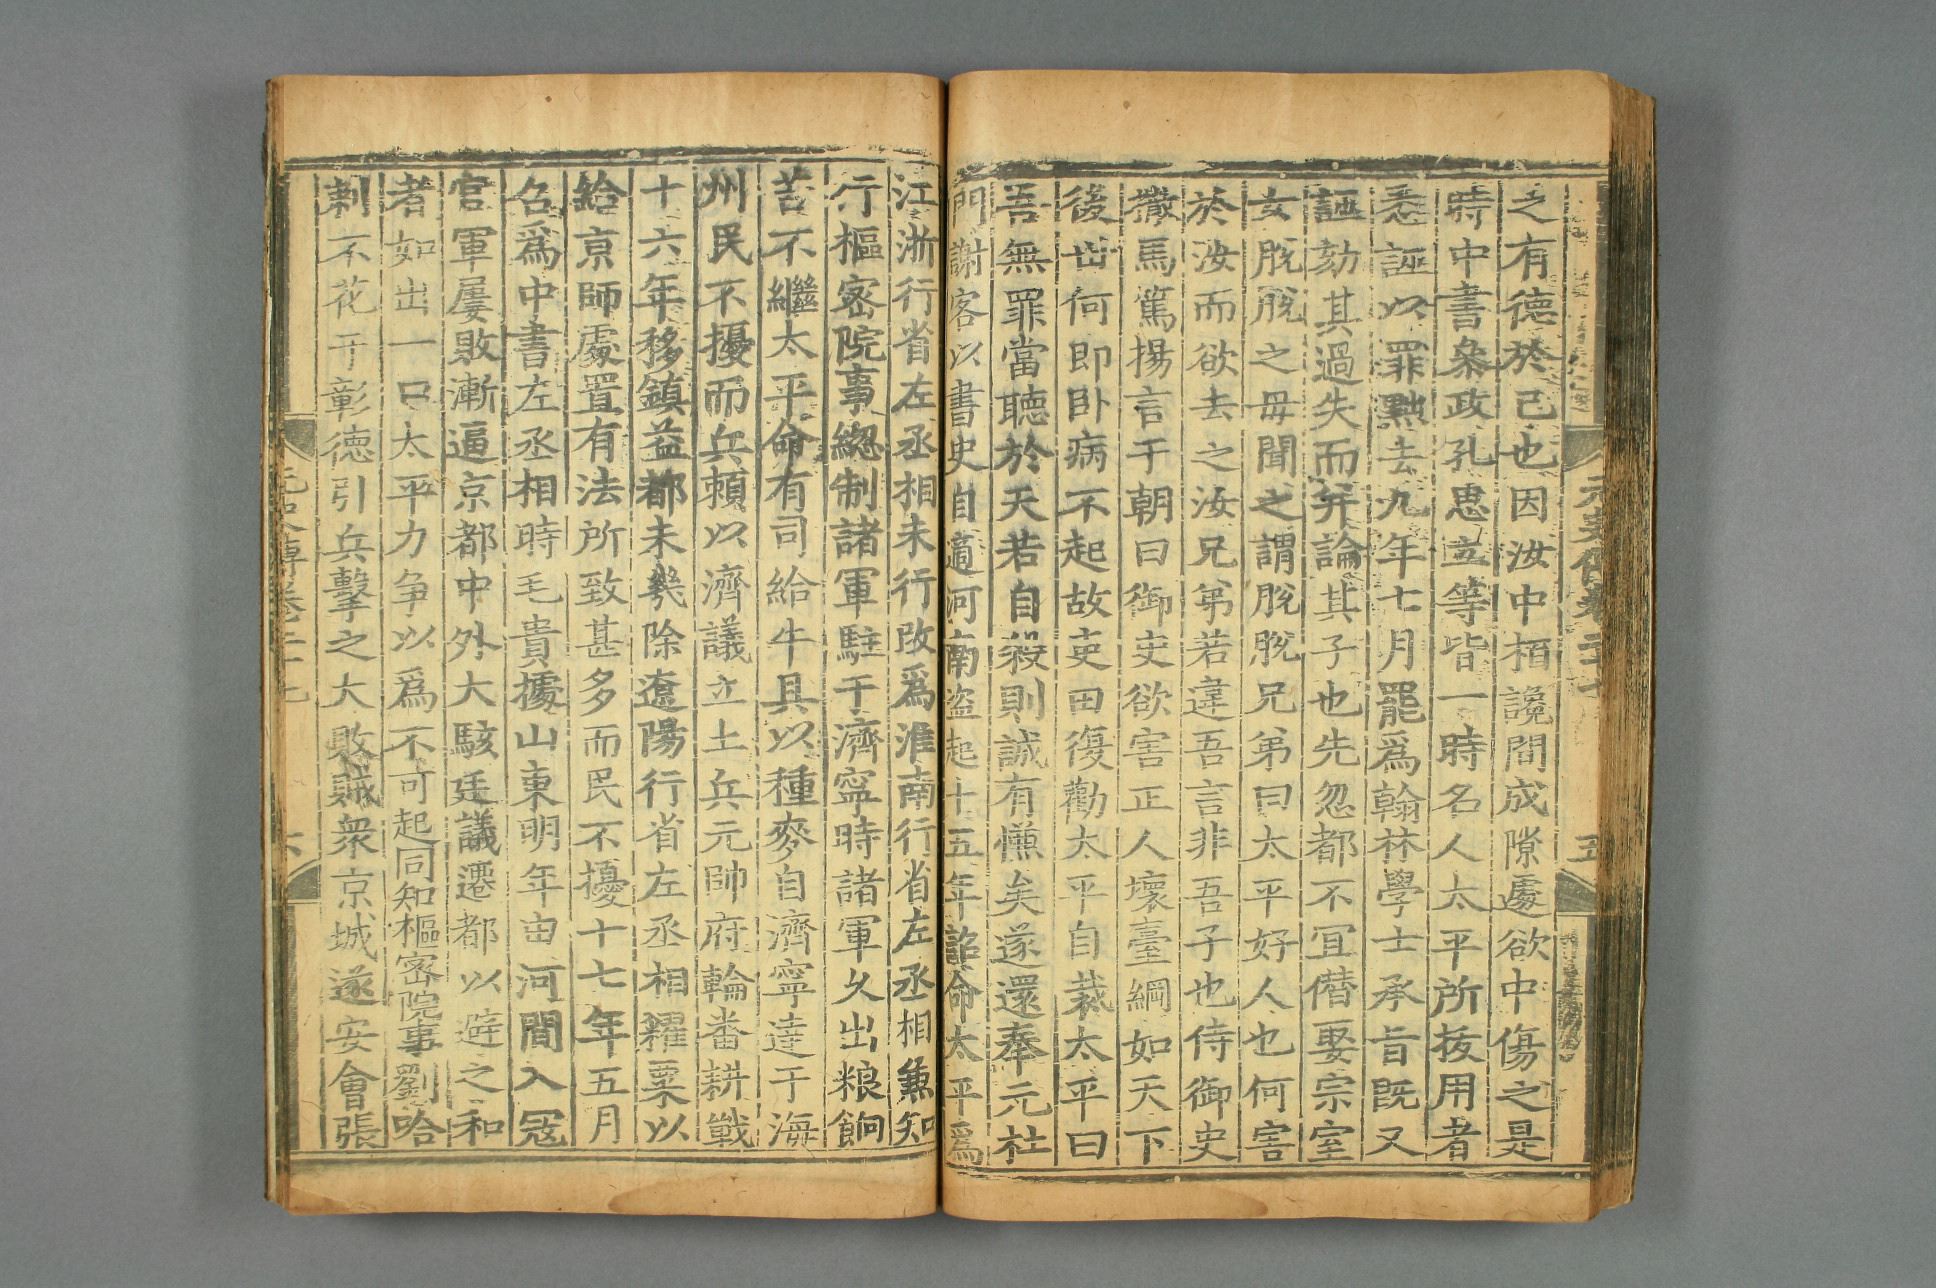 之有德於己也因汝中栢讒間成隙處欲中傷之是
時中書叅政孔思立等皆一時名人太平所拔用者
悉誣以罪黜去九年七月罷爲翰林學士承旨既又
誣劾其過失而并論其子也先忽都不宜僭娶宗室
女脫脫之母聞之謂脫脫兄弟曰太平好人也何害
於汝而欲去之汝兄弟若違吾言非吾子也侍御史
撒馬篤揚言于朝曰御史欲害正人壞臺綱如天下
後世何即卧病不起故吏田復勸太平自裁太平曰
吾無罪當聽於天若自殺則誠有慊矣遂還奉元杜
門謝客以書史自適河南盗起十五年詔命太平爲
江浙行省左丞相未行改爲淮南行省左丞相兼知
行樞密院事緫制諸軍駐于濟寧時諸軍久出粮餉
苦不繼太平命有司給牛具以種麥自濟寧達于海
州民不擾而兵頼以濟議立土兵元帥府輪畨耕戰
十六年移鎮益都未幾除遼陽行省左丞相糴粟以
給京師處置有法所致甚多而民不擾十七年五月
召爲中書左丞相時毛貴據山東明年由河間入冦
官軍屢敗漸逼京都中外大駭廷議遷都以避之和
者如出一口太平力争以爲不可起同知樞密院事劉哈
剌不花于彰德引兵擊之大敗賊衆京城遂安會張
元史傳卷二十七
六